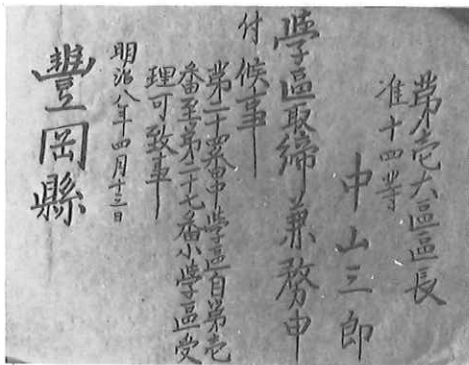 第壱大區區長
准十四等
中山三郎
学區取締兼務申
付候事
第二十四番中学區自第壱
番至第二十七番小学區受
理可致事
明治八年四月十三日
豐岡縣